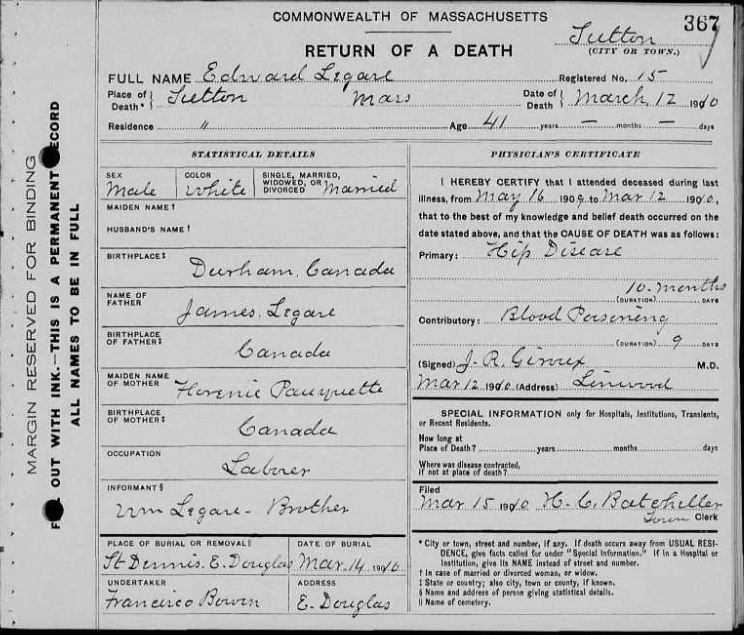 COMMONWEALTH OF MASSACHUSETTS
367
RETURN OF A DEATH
Sutton
(CITY OR TOWN.)
FULL NAME Edward Legare
Registered No. 15
Place of Death* Sutton Mass
Date of Death March 12 1910
Residence "
Age 41 years — months — days
MARGIN RESERVED FOR BINDING
OUT WITH INK.—THIS IS A PERMANENT RECORD
ALL NAMES TO BE IN FULL
STATISTICAL DETAILS
SEX Male
COLOR White
SINGLE, MARRIED, WIDOWED, OR DIVORCED Married
MAIDEN NAME †
HUSBAND'S NAME †
BIRTHPLACE ‡
Durham, Canada
NAME OF FATHER
James Legare
BIRTHPLACE OF FATHER ‡
Canada
MAIDEN NAME OF MOTHER
BIRTHPLACE OF MOTHER ‡
Canada
OCCUPATION
Laborer
INFORMANT §
Wm Legare - Brother
PLACE OF BURIAL OR REMOVAL ||
St Dennis. E. Douglas
DATE OF BURIAL
Mar. 14 1910
UNDERTAKER
Francisco Bowen
ADDRESS
E. Douglas
PHYSICIAN'S CERTIFICATE
I HEREBY CERTIFY that I attended deceased during last
illness, from May 16 1909 to Mar 12 1910,
that to the best of my knowledge and belief death occurred on
the date stated above, and that the CAUSE OF DEATH was as follows:
Primary: Hip Disease
10 months
(DURATION) DAYS
Contributory: Blood Poisoning
(DURATION) 9 DAYS
(Signed) J. R. Giroux M.D.
Mar 12 1910 (Address) Linwood
SPECIAL INFORMATION only for Hospitals, Institutions, Transients,
or Recent Residents.
How long at
Place of Death? years months days
Where was disease contracted,
if not at place of death?
Filed
Mar 15 1910 H. C. Batcheller
Town Clerk
* City or town, street and number, if any. If death occurs away from USUAL RESI-
DENCE, give facts called for under "Special Information." If in a Hospital or
Institution, give its NAME instead of street and number.
† In case of married or divorced woman, or widow.
‡ State or country; also city, town or county, if known.
§ Name and address of person giving statistical details.
|| Name of cemetery.